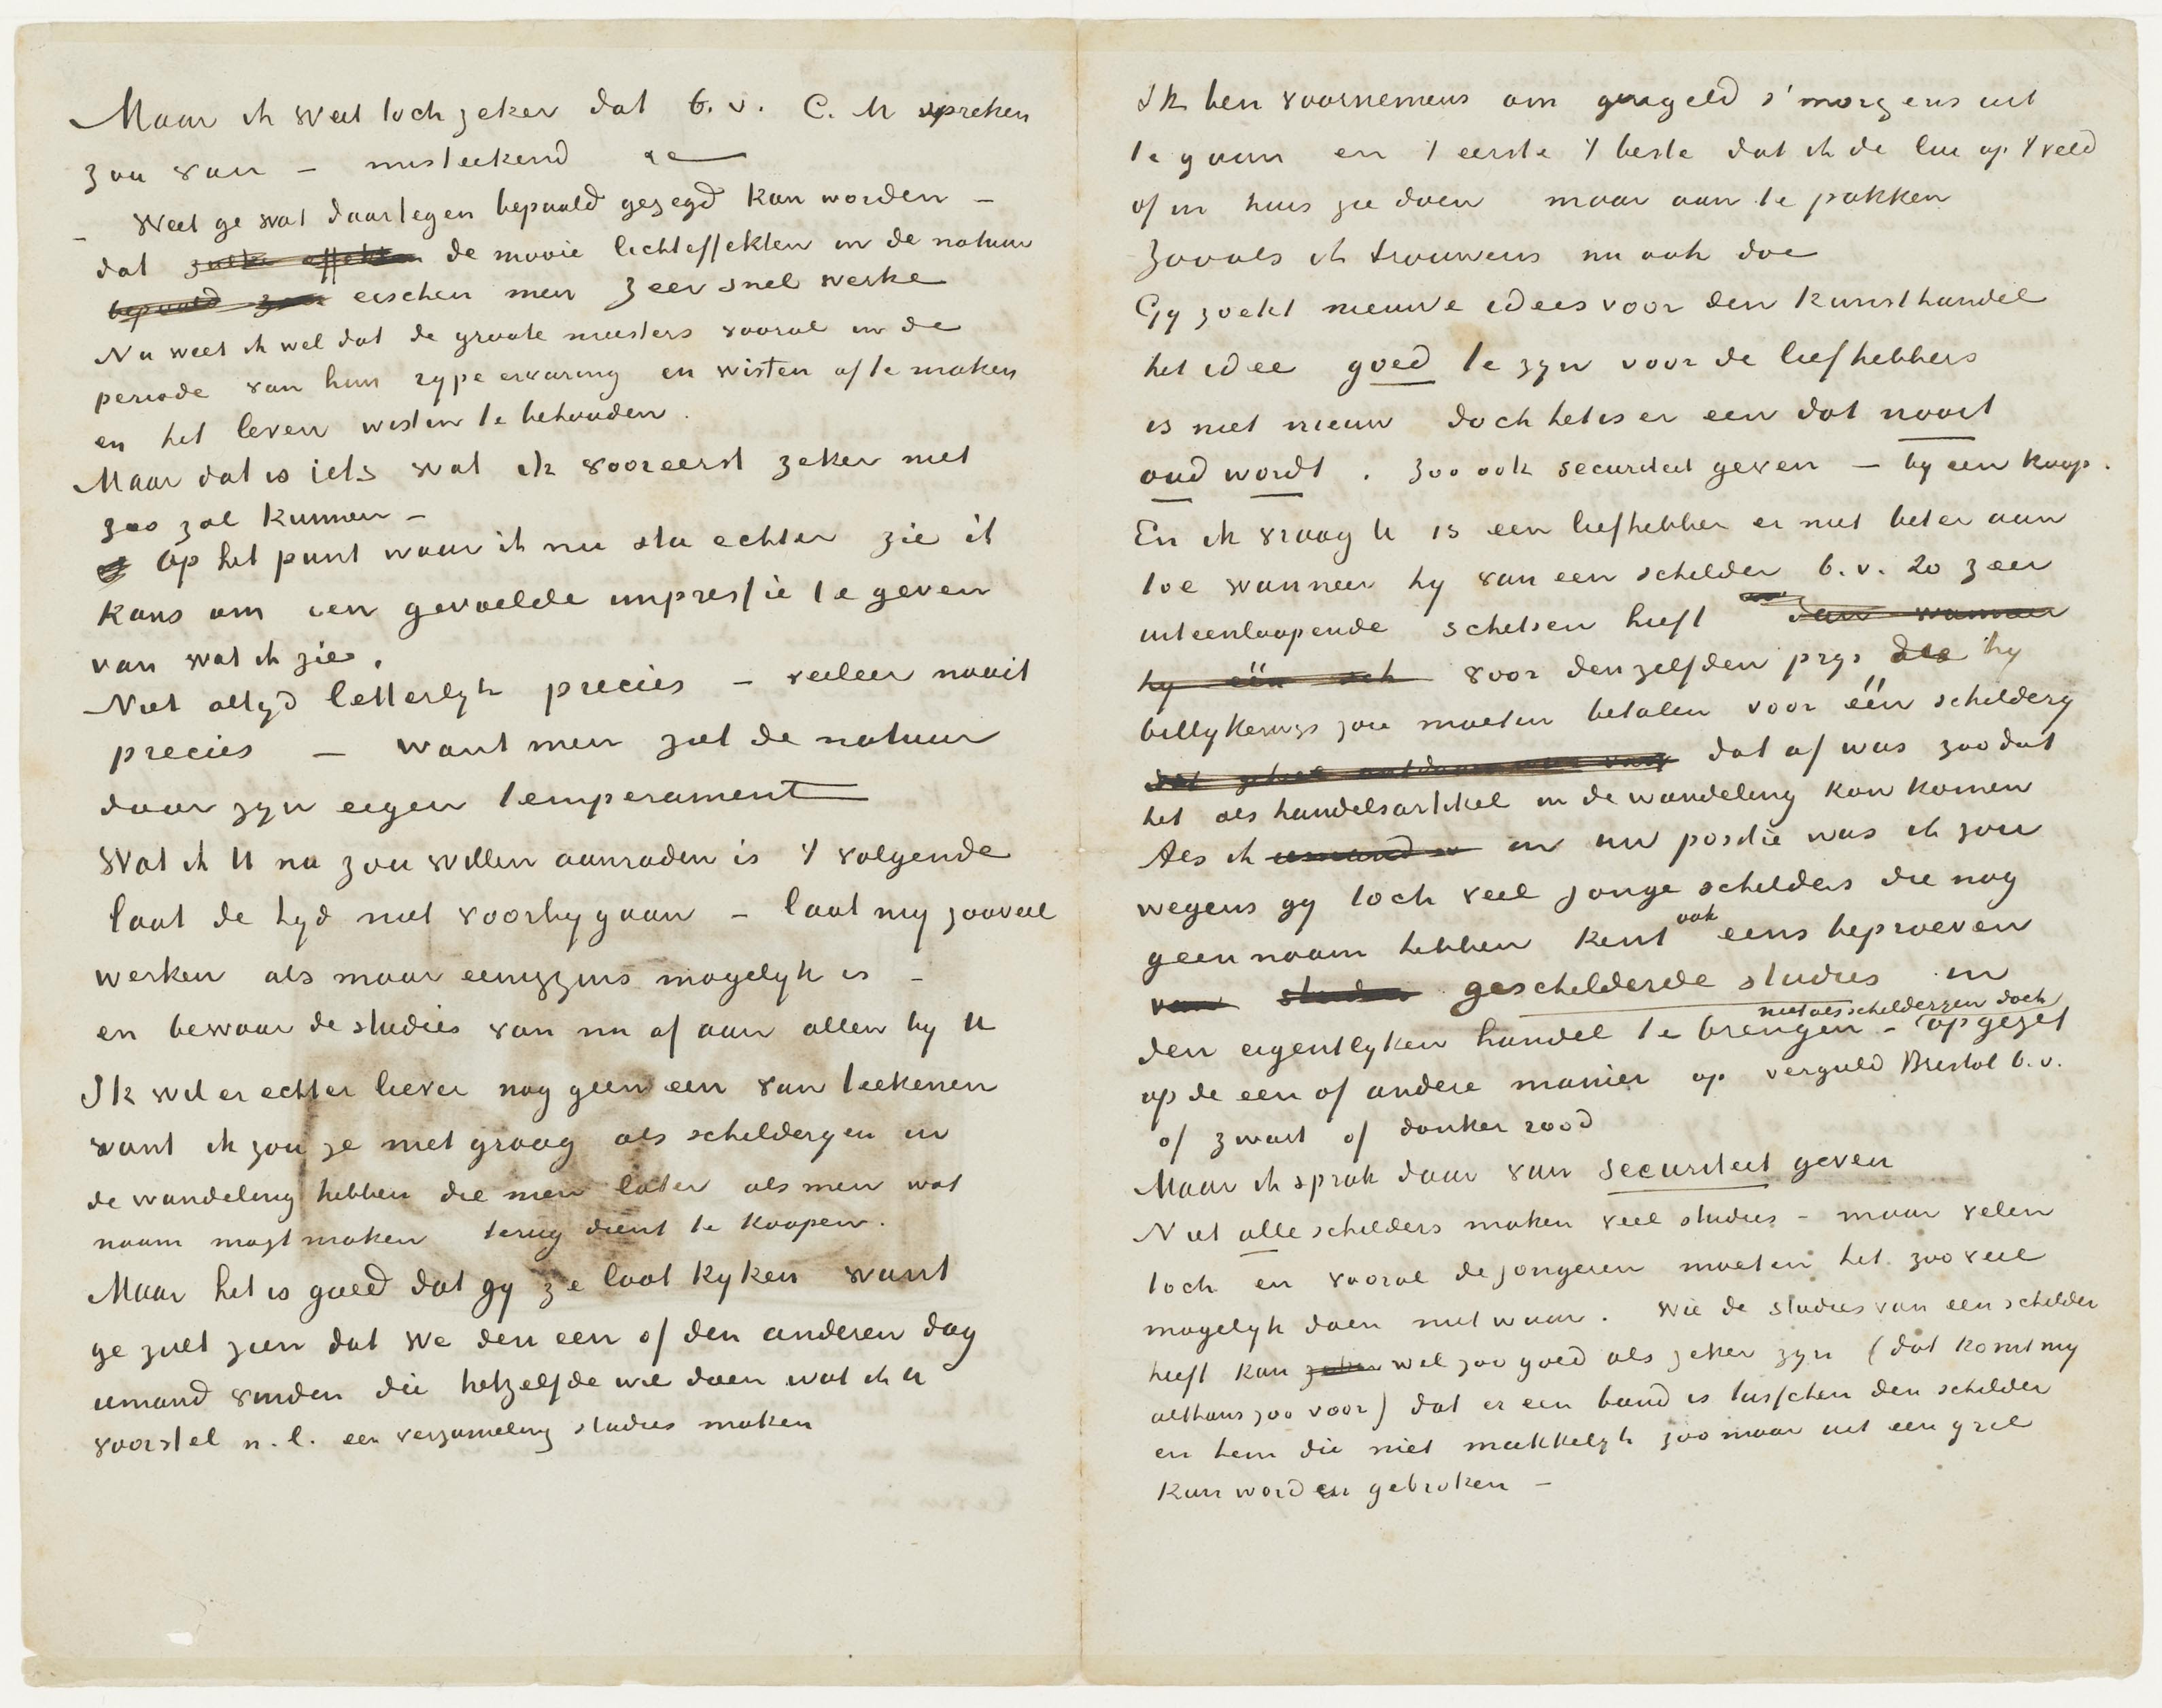 Maar ik weet toch zeker dat b.v. C.M. spreken
zou van – misteekend &c
– Weet ge wat daartegen bepaald gezegd kan worden –
dat zulke effekten de mooie lichteffekten in de natuur
bepaald zeer eischen men zeer snel werke
Nu weet ik wel dat de groote meesters vooral in de
periode van hun rype ervaring en wisten af te maken
en het leven wisten te behouden.
Maar dat is iets wat ik vooreerst zeker niet
zoo zal kunnen –
Op het punt waar ik nu sta echter zie ik
kans om een gevoelde impressie te geven
van wat ik zie.
Niet altyd letterlyk precies – veeleer nooit
precies – want men ziet de natuur
door zyn eigen temperament
Wat ik U nu zou willen aanraden is 't volgende
laat de tyd niet voorby gaan – laat my zooveel
werken als maar eenigzins mogelyk is –
en bewaar de studies van nu af aan allen by U
Ik wil er echter liever nog geen een van teekenen
want ik zou ze niet graag als schilderyen in
de wandeling hebben die men later als men wat
naam mogt maken terug dient te koopen.
Maar het is goed dat gy ze laat kyken want
ge zult zien dat we den een of den anderen dag
iemand vinden die hetzelfde wil doen wat ik U
voorstel n.l. een verzameling studies maken
Ik ben voornemens om geregeld s'morgens uit
te gaan en 't eerste 't beste dat ik de lui op 't veld
of in huis zie doen maar aan te pakken
Zooals ik trouwens nu ook doe
Gy zoekt nieuwe idees voor den kunsthandel
het idee goed te zyn voor de liefhebbers
is niet nieuw doch het is er een dat nooit
oud wordt. Zoo ook securiteit geven – by een koop.
En ik vraag U is een liefhebber er niet beter aan
toe wanneer hy van een schilder b.v. 20 zeer
uiteenloopende schetsen heeft dan wanneer
hy één voor denzelfden prys die hy
billykerwys zou moeten betalen voor één schildery
dat af was zoodat
het als handelsartikel in de wandeling kon komen
Als ik iemand in uw positie was ik zou
wegens gy toch veel jonge schilders die nog
geen naam hebben kent ook eens beproeven
van studies geschilderde studies in
den eigentlyken handel te brengen – niet als schilderyen doch opgezet
op de een of andere manier op verguld Bristol b.v.
of zwart of donker rood
Maar ik sprak daar van securiteit geven
Niet alle schilders maken veel studies – maar velen
toch en vooral de jongeren moeten het zooveel
mogelyk doen niet waar. Wie de studies van een schilder
heeft kan zeker wel zoo goed als zeker zyn (dat komt my
althans zoo voor) dat er een band is tusschen den schilder
en hem die niet makkelyk zoo maar uit een gril
kan worden gebroken –